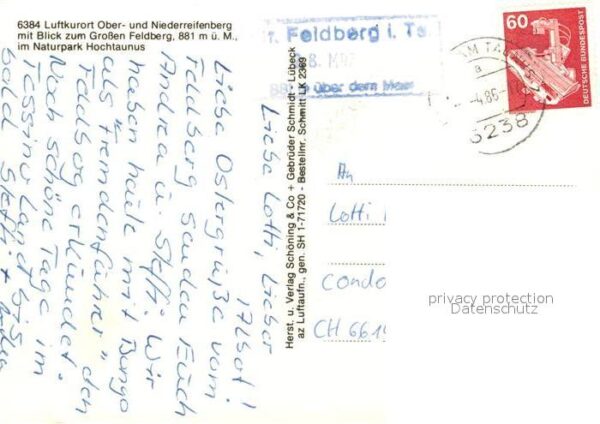 6384 Luftkurort Ober- und Niederreifenberg
mit Blick zum Großen Feldberg, 881 m ü. M.,
im Naturpark Hochtaunus
Feldberg i. Ts
über dem Meer
60
DEUTSCHE BUNDESPOST
AM TAU
a
4.86
6238
Liebe Lotti, Lieber
Liebe Ostergrüße vom
Feldberg senden Euch
Andrea u. Steffi. Wir
haben heute mit Bingo
als "Fremdenführer" den
Feldberg erkundet.
Noch schöne Tage im
Tessin u. bis
bald Steffi +
Herst. u. Verlag Schöning & Co + Gebrüder Schmidt · Lübeck
az Luftaufn., gen. SH 1-71720 - Bestellnr. Schmitt LK 2369
An
Lotti
Condo
CH 661
privacy protection
Datenschutz